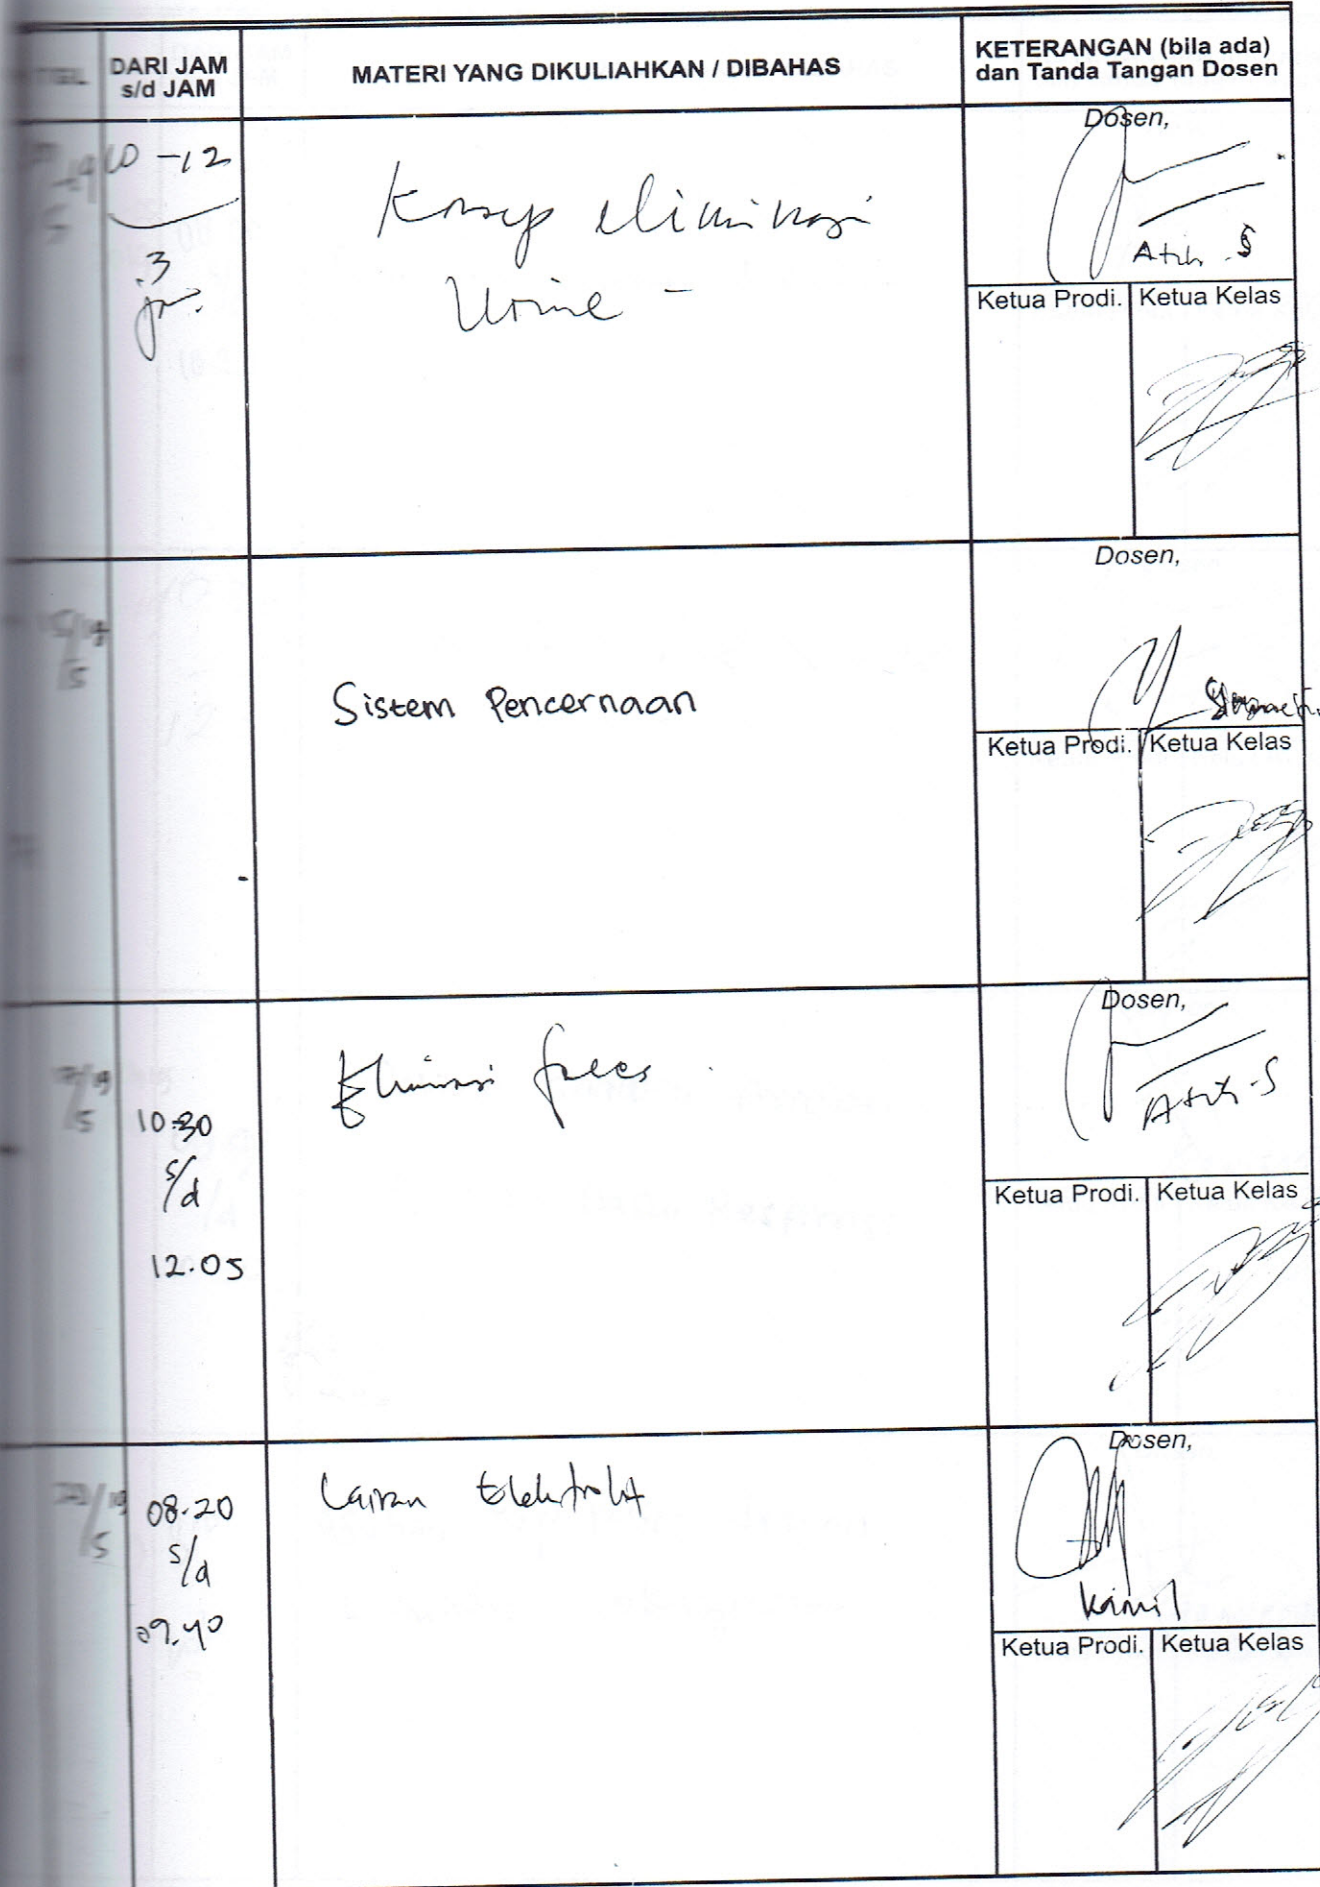 TGL
DARI JAM
s/d JAM
MATERI YANG DIKULIAHKAN / DIBAHAS
KETERANGAN (bila ada)
dan Tanda Tangan Dosen
10 -12
3
Konsep eliminasi
Urine -
Dosen,
Atih . S
Ketua Prodi.
Ketua Kelas
15/19
/5
Sistem Pencernaan
Dosen,
Ketua Prodi.
Ketua Kelas
17/19
/5
10.30
s/d
12.05
Eliminasi faeces
Dosen,
Atih . S
Ketua Prodi.
Ketua Kelas
/19
/5
08.20
s/d
09.40
Cairan Elektrolit
Dosen,
Kamil
Ketua Prodi.
Ketua Kelas